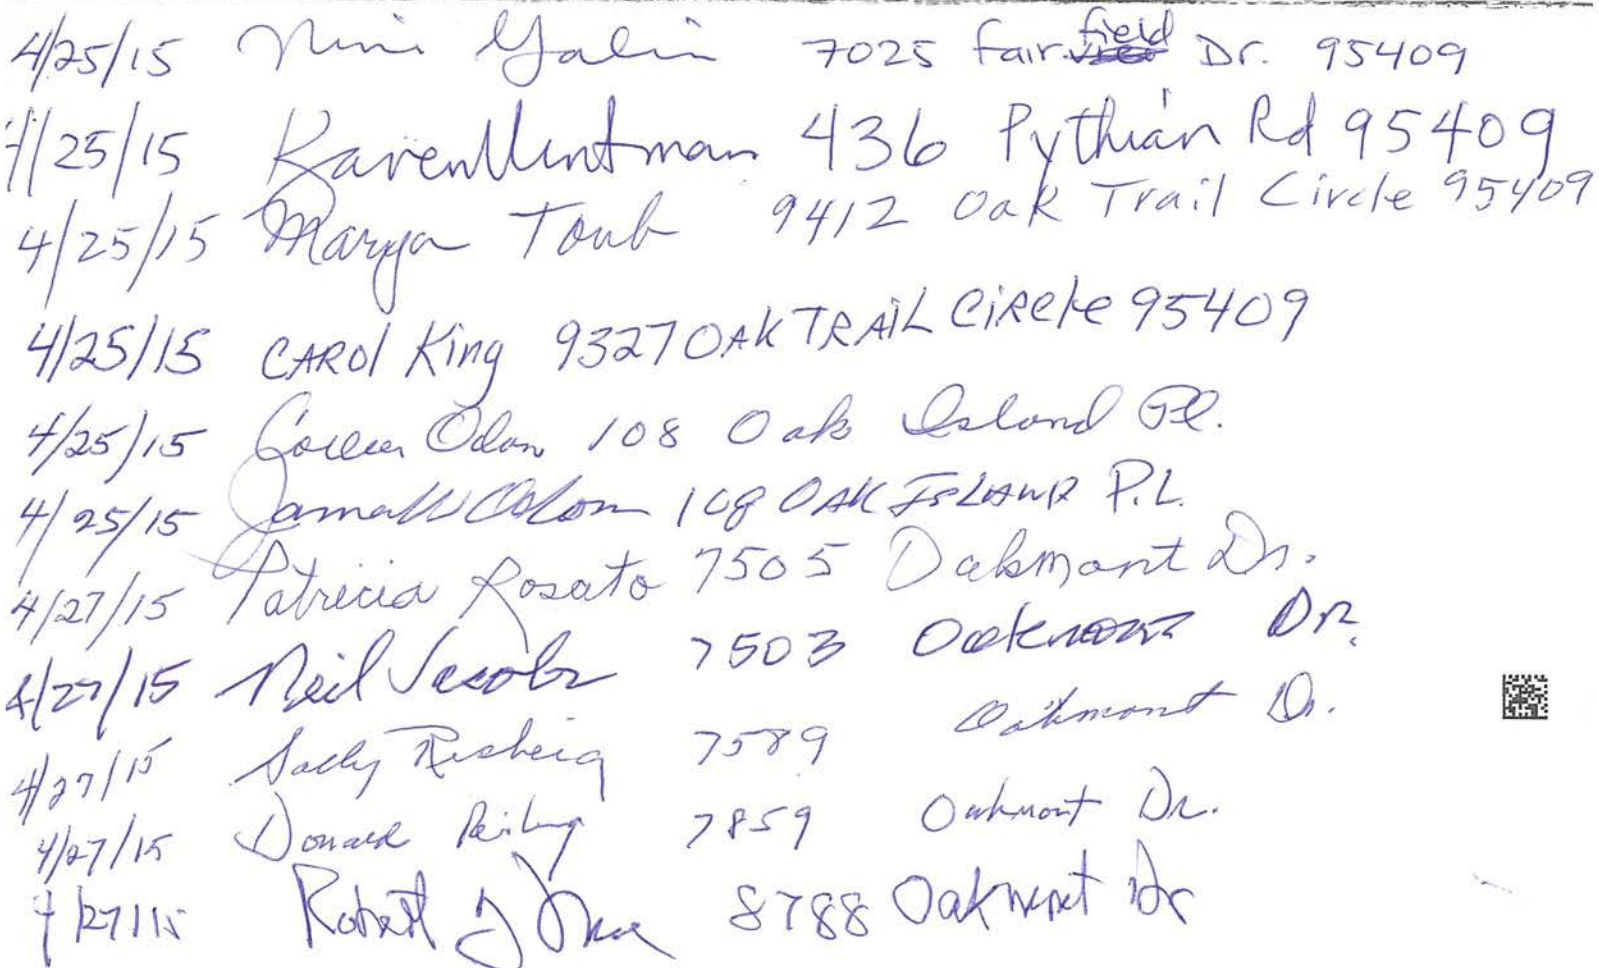 4/25/15 Nini Yalin 7025 Fairfield Dr. 95409
4/25/15 Karen 436 Pythian Rd 95409
4/25/15 Marya Toub 9412 Oak Trail Circle 95409
4/25/15 CAROl King 9327 OAK TRAiL CiRcle 95409
4/25/15 108 Oak Island Pl.
4/25/15 108 OAK ISLAND P.L.
4/27/15 Patricia Rosato 7505 Oakmont Dr.
4/27/15 Neil Jacobs 7503 Oakmont DR.
4/27/15 Sally 7589 Oakmont Dr.
4/27/15 Donald 7859 Oakmont Dr.
4/27/15 Robert J 8788 Oakmont Dr